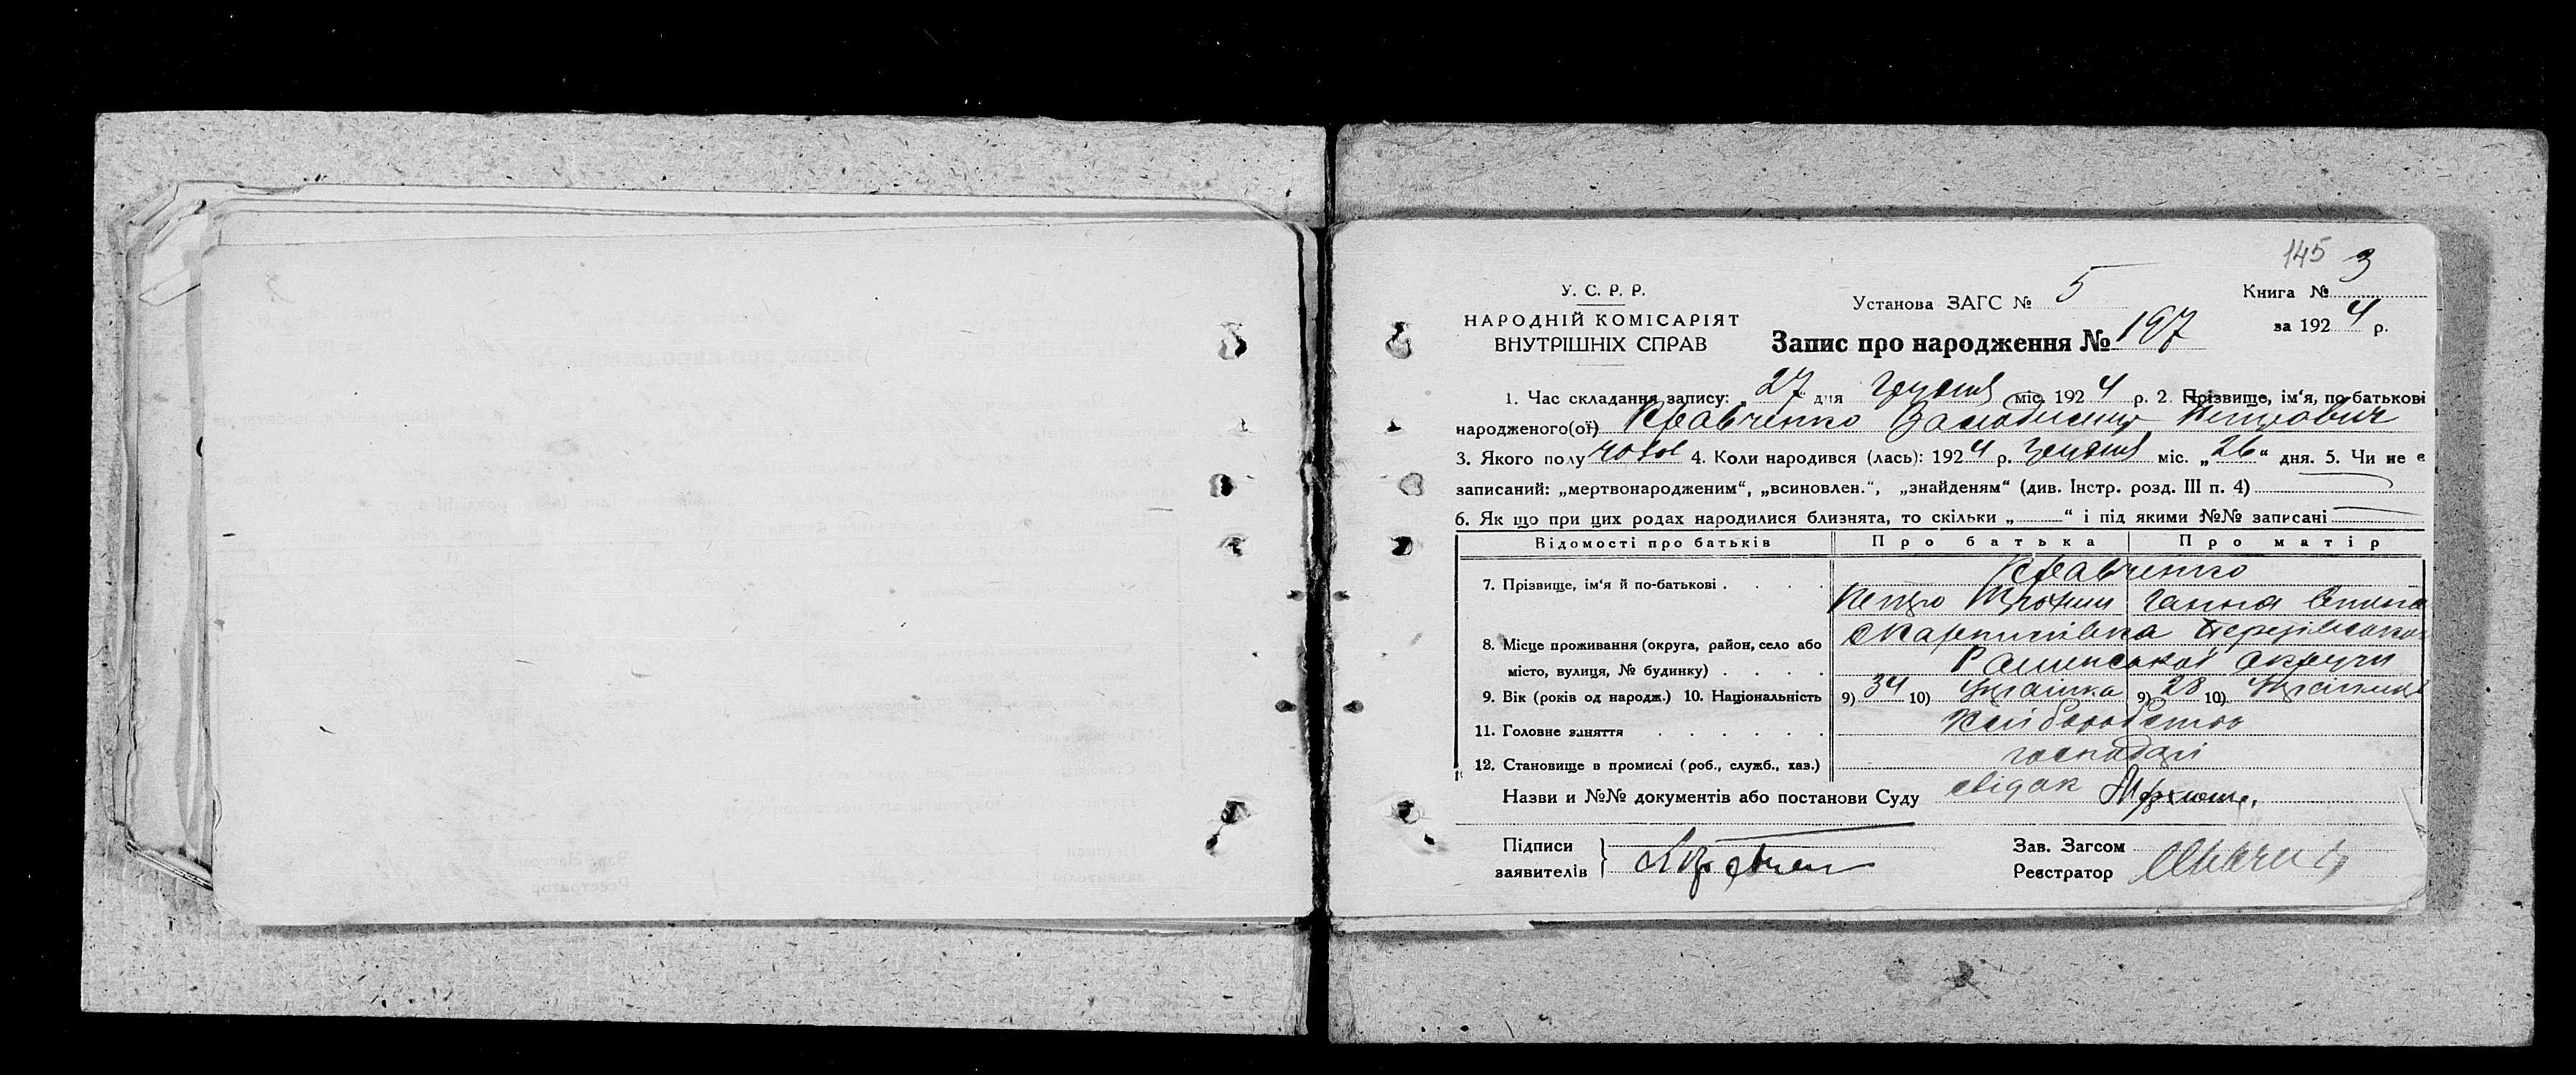 145 3
У. С. Р. Р.
Установа ЗАГС № 5
Книга №
НАРОДНІЙ КОМІСАРІЯТ
ВНУТРІШНІХ СПРАВ
Запис про народження № 197
за 1924 р.
1. Час складання запису: „27" дня грудня міс. 1924 р. 2. Прізвище, ім'я, по-батькові
народженого(ої) Кравченко Володимир Петрович
3. Якого полу чолов 4. Коли народився (лась): 1924 р. грудня міс. „26" дня. 5. Чи не є
записаний: „мертвонародженим", „всиновлен.", „знайденям" (див. Інстр. розд. III п. 4)
6. Як що при цих родах народилися близнята, то скільки „ " і під якими №№ записані
Відомості про батьків Про батька Про матір
7. Прізвище, ім'я й по-батькові . . . . Кравченко
Петро Ганна
8. Місце проживання (округа, район, село або
місто, вулиця, № будинку) . . . . Роменської округи
9. Вік (років од народж.) 10. Національність 9) 34 10) 9) 28 10)
11. Головне заняття . . . . . . хліборобство
12. Становище в промислі (роб., служб., хаз.) господарі
Назви и №№ документів або постанови Суду свідок
Підписи
заявителів
Зав. Загсом
Реєстратор